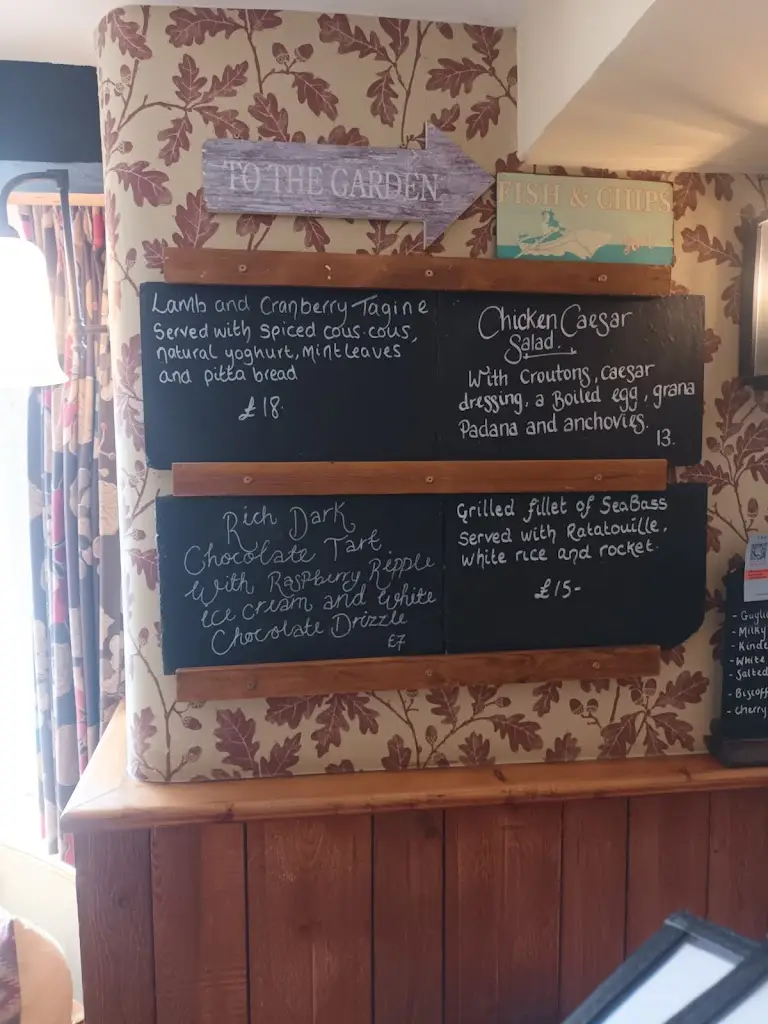 TO THE GARDEN
FISH & CHIPS
Lamb and Cranberry Tagine
Served with spiced cous-cous,
natural yoghurt, mint leaves
and pitta bread
£18.
Chicken Caesar
Salad.
With Croutons, caesar
dressing, a Boiled egg, grana
Padana and anchovies.
13.
Rich Dark
Chocolate Tart
With Raspberry Ripple
ice cream and white
Chocolate Drizzle
£7
Grilled fillet of SeaBass
Served with Ratatouille,
white rice and rocket.
£15-
- Milky
- Kinde
- White
- Salted
- Biscoff
- Cherry